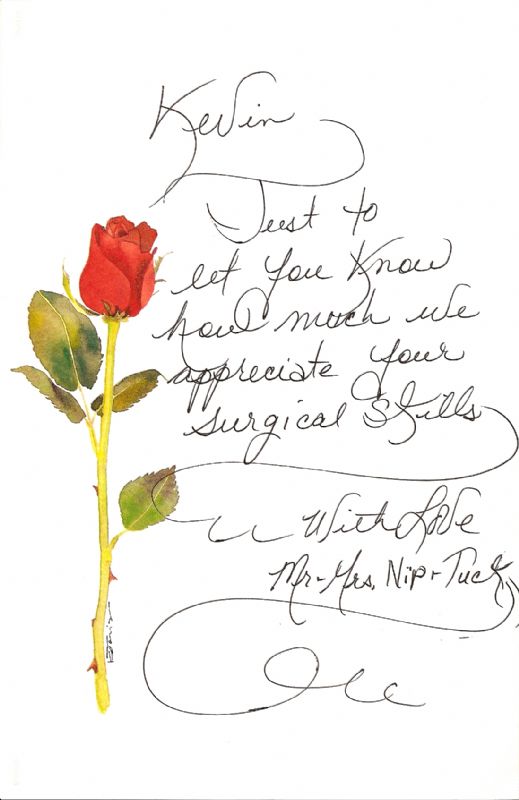 Kevin
Just to
let you know
how much we
appreciate your
surgical skills
With Love
Mr-Mrs. Nip-Tuck